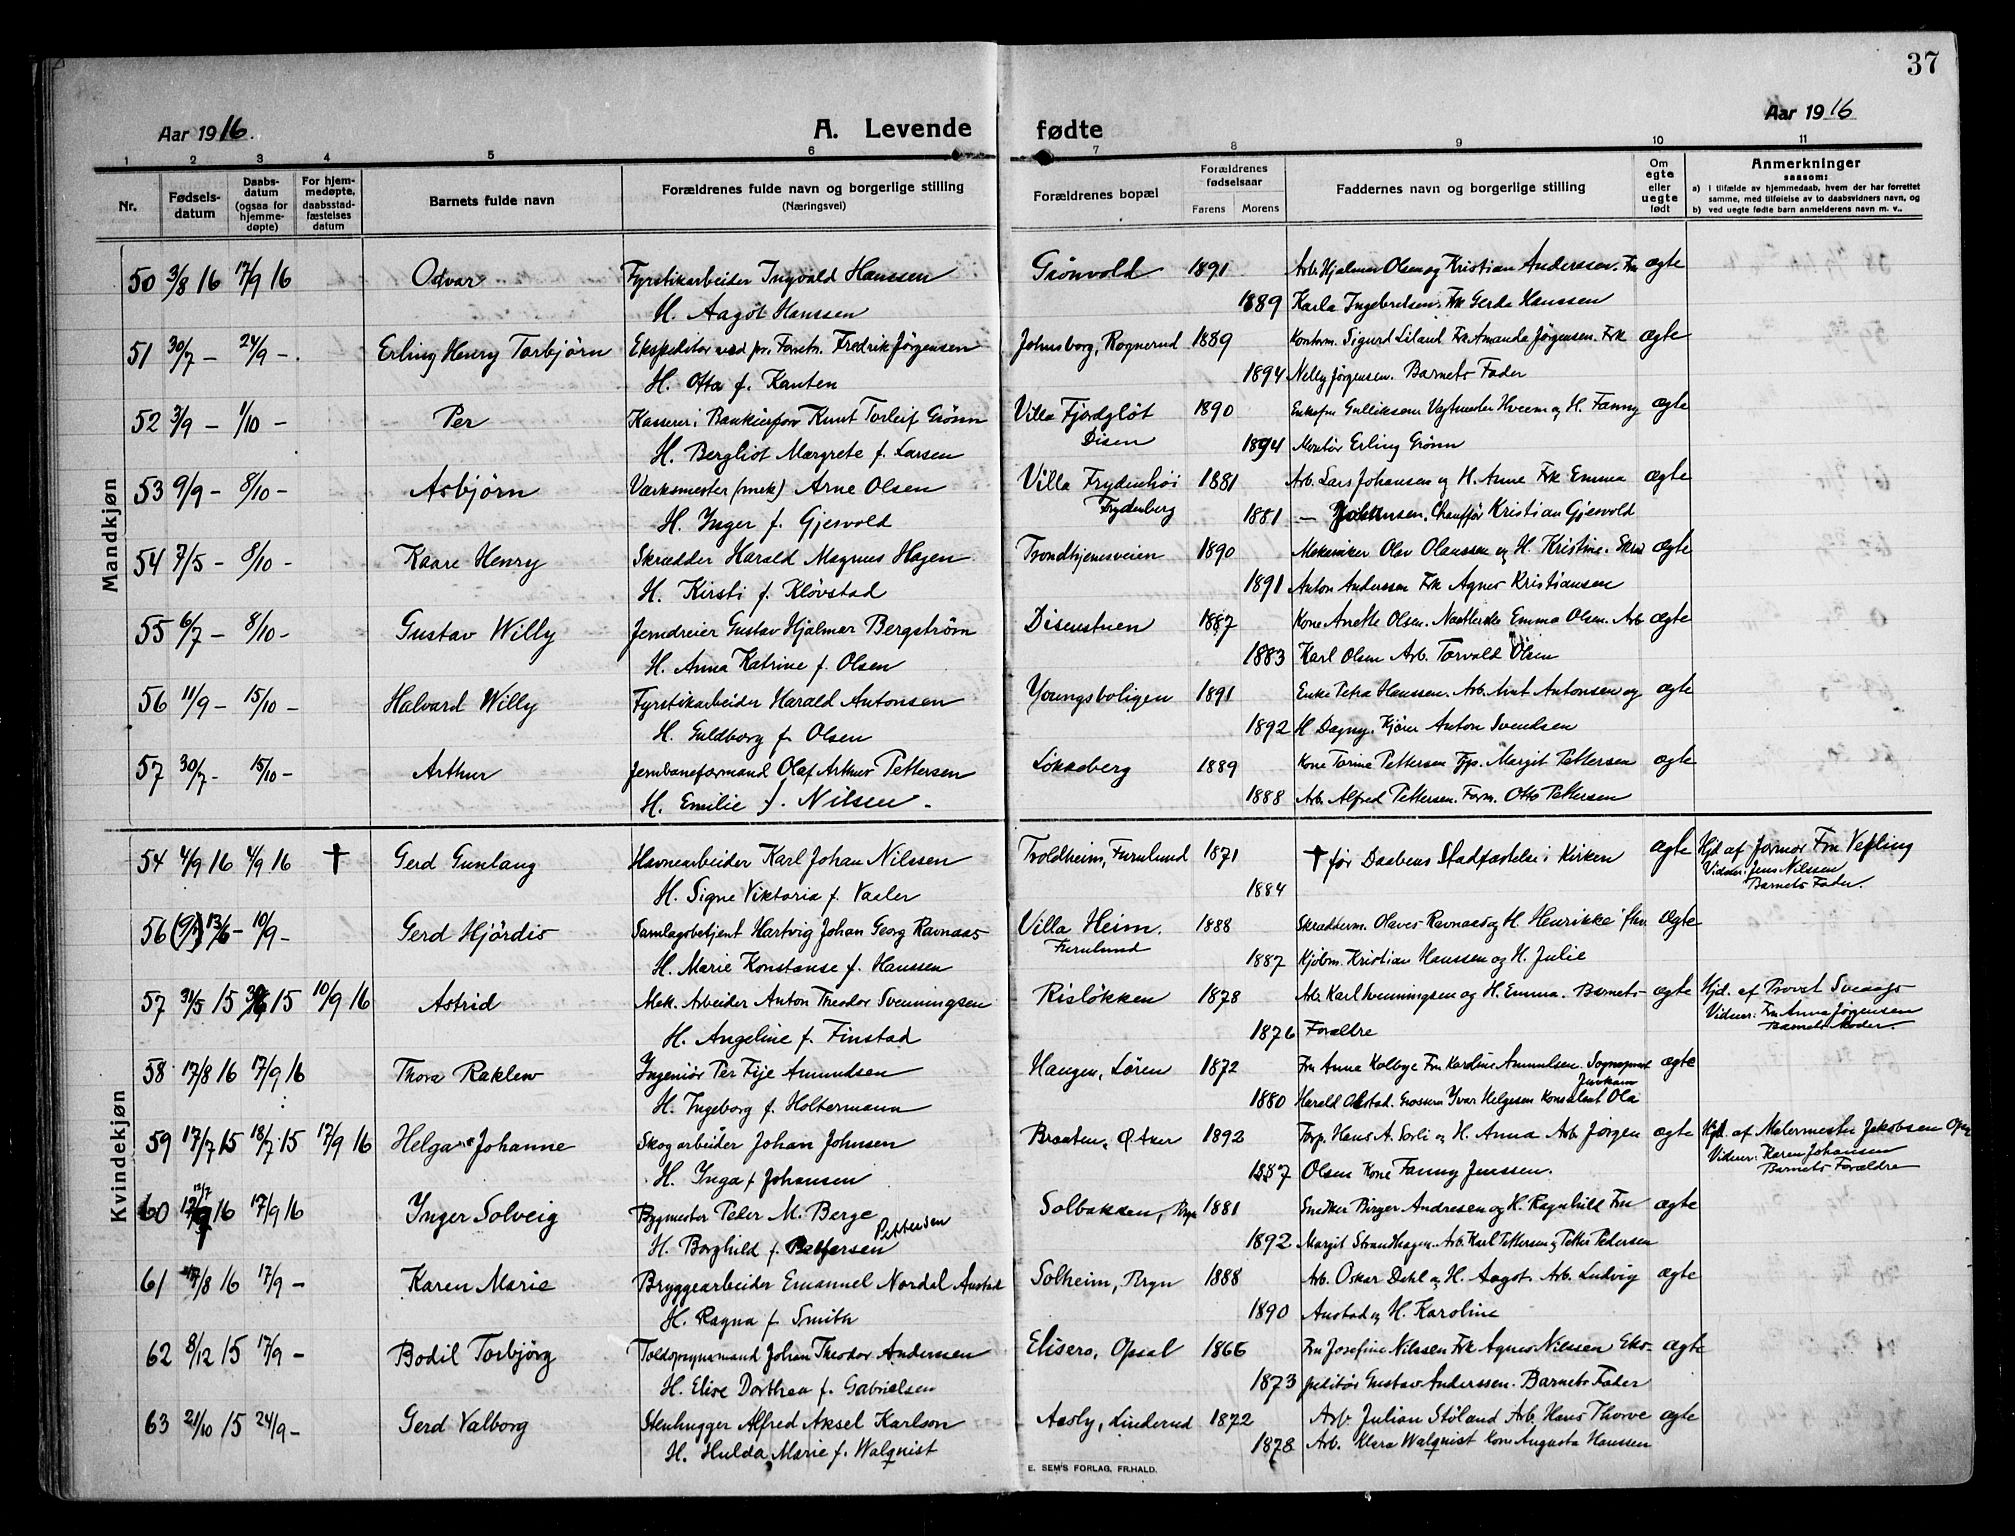 37
Aar 1916.
A. Levende fødte
Aar 1916
1 2 3 4 5 6 7 8 9 10 11
Nr.
Fødsels-
datum
Daabs-
datum
(ogsaa for
hjemme-
døpte)
For hjem-
medøpte,
daabsstad-
fæstelses
datum
Barnets fulde navn
Forældrenes fulde navn og borgerlige stilling
(Næringsvei)
Forældrenes bopæl
Forældrenes
fødselsaar
Farens Morens
Faddernes navn og borgerlige stilling
Om
egte
eller
uegte
født
Anmerkninger
saasom:
a) i tilfælde av hjemmedaab, hvem der har forrettet
samme, med tilføielse av to daabsvidners navn, og
b) ved uegte fødte barn anmelderens navn m. v..
Mandkjøn
50 3/8 16 17/9 16 Odvar Fyrstikarbeider Ingvald Hanssen Grönvold 1891 Arb. Hjalmar Olsen og Kristian Anderssen. Fru ægte
H. Aagot Hanssen 1889 Karla Ingebretsen. Frk Gerda Hanssen
51 30/7 – 24/9 – Erling Henry Torbjörn Ekspeditør ved pr. Forretn. Fredrik Jørgensen Johnsborg, Rognerud 1889 Kontorm. Sigurd Liland Fru Amanda Jørgensen. Frk ægte
H. Otta f. Kanten 1894 Nelly Jørgensen. Barnets Fader
52 3/9 – 1/10 – Per Kasserer i Bankierforr Knut Torleif Grönn Villa Fjordgløt 1890 Enkefru Gulliksen Vagtmester Hveem og H. Fanny ægte
Disen
H. Bergliot Margrete f. Larsen 1894 Montør Erling Grönn
53 9/9 – 8/10 – Asbjörn Værksmester (mek) Arne Olsen Villa Frydenhöi 1881 Arb. Lars Johansen og H. Anne Frk Emma ægte
Frydenberg
H. Inger f. Gjesvold 1881 – Johansen, Chauffør Kristian Gjesvold
54 7/5 – 8/10 – Kaare Henry Skrædder Harald Magnus Hagen Trondhjemsveien 1890 Mekaniker Olav Olaussen og H. Kristine. Skræd ægte
H. Kirsti f. Kløvstad 1891 Anton Anderssen Frk Agnes Kristiansen
55 6/7 – 8/10 – Gustav Willy Jerndreier Gustav Hjalmar Bergström Disenstuen 1887 Kone Anette Olsen. Emma Olsen. Arb ægte
H. Anna Katrine f. Olsen 1883 Karl Olsen Arb. Torvald Olsen
56 11/9 – 15/10 – Halvard Willy Fyrstikarbeider Harald Antonsen Youngsboligen 1891 Enke Petra Hanssen. Arb. Arnt Antonsen og ægte
H. Guldborg f. Olsen 1892 H Dagny. Kjører Anton Svendsen
57 30/7 – 15/10 – Arthur Jernbaneformand Olaf Arthur Pettersen Løkaaberg 1889 Kone Torine Pettersen Tjp. Margit Pettersen ægte
H. Emilie f. Nilsen – 1888 Arb. Alfred Pettersen. Form. Otto Pettersen
Kvindekjøn
54 4/9 16 4/9 16 † Gerd Gunlaug Havnearbeider Karl Johan Nilssen Troldheim, Furulund 1871 † før Daabens Stadfæstelse i Kirken ægte Hjd af Jormor Fru Vefling
H. Signe Viktoria f. Vaaler 1884 Vidner: Jens Nilssen
Barnets Fader.
56 13/6 – 10/9 – Gerd Hjördis Samlagsbetjent Hartvig Johan Georg Ravnaas Villa Heim. 1888 Skrædderm. Olaves Ravnaas og H. Henrikke fhv. ægte
Furulund
H. Marie Konstanse f. Hanssen 1887 Kjöbm. Kristian Hanssen og H. Julie
57 31/5 15 15 10/9 16 Astrid Mek. Arbeider Anton Theodor Svenningsen Risløkken 1878 Arb Karl Svenningsen og H. Emma. Barnets ægte Hjd. af Provst Sveaas
H. Angeline f. Finstad 1876 Forældre Vidner: Fru Anna Jørgensen
Barnets Moder
58 17/8 16 17/9 16 Thora Raklew Ingeniør Per Fije Amundsen Haugen, Lören 1872 Fru Anna Kolbye Fru Kardine Amundsen. Sogneprest ægte
H. Ingeborg f. Holtermann 1880 Harald Olstad. Grosserer Yvar Helgesen Konsulent Ola
59 17/7 15 18/7 15 17/9 16 Helga Johanne Skogarbeider Johan Johnsen Braaten, Østker 1892 Forp. Hans A. Sorli og H. Anna Arb Jörgen ægte Hjd. af Malermester Jakobsen
H. Inga f Johansen 1887 Olsen Kone Fanny Jenssen. Vidner: Karen Johansen
Barnets Forældre
60 13/7 16 17/9 16 Inger Solveig Bygmester Peter M. Berge Solbakken, Bryn 1881 Snedker Birger Andresen og H. Ragnhild Fru ægte
H. Borghild f. Pettersen 1892 Margit Strandhagen. Arb. Karl Pettersen og Petter Pedersen
61 17/8 16 17/9 – Karen Marie Bryggearbeider Emanuel Nordal Austad Solheim, Bryn 1888 Arb. Oskar Dehl og H. Aagot. Arb. Ludvig ægte
H. Ragna f Smith 1890 Austad og H. Karoline
62 8/12 15 17/9 – Bodil Torbjörg Toldopsynsmand Johan Theodor Anderssen Elisero, Opsal 1866 Fru Josefine Nilssen Frk Agnes Nilssen Eks- ægte
H. Elise Dorthea f. Gabrielsen 1873 peditør Gustav Anderssen. Barnets Fader
63 21/10 15 24/9 – Gerd Valborg Stenhugger Alfred Aksel Karlson Aasly, Linderud 1872 Arb. Julian Støland Arb. Hans Thorve ægte
H. Hulda Marie f. Walqvist 1878 Arb. Klara Walqvist Kone Augusta Hanssen
E. SEM'S FORLAG, FR.HALD.